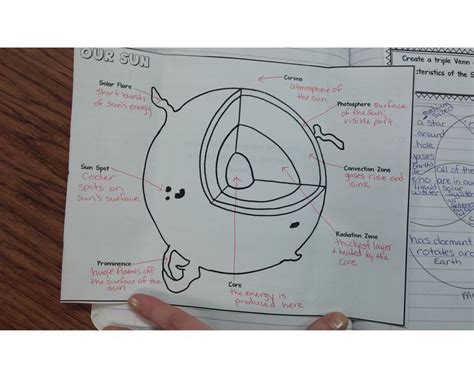 OUR SUN
Solar Flare
Short bursts
of sun's energy
Corona
atmosphere of
the sun
Photosphere surface
of the sun's
visible part
Sun Spot
Cooler
spots on
sun's surface
Convection Zone
gases rise and
sink
Radiation Zone
thickest layer
+ heated by the
core
Prominence
huge flames off
the surface of the
sun
Core
the energy is
produced here
Create a triple Venn
cteristics of the S
a star
around
hole
gases
all of the
are in ou
solar
has dormant
rotates around
Earth